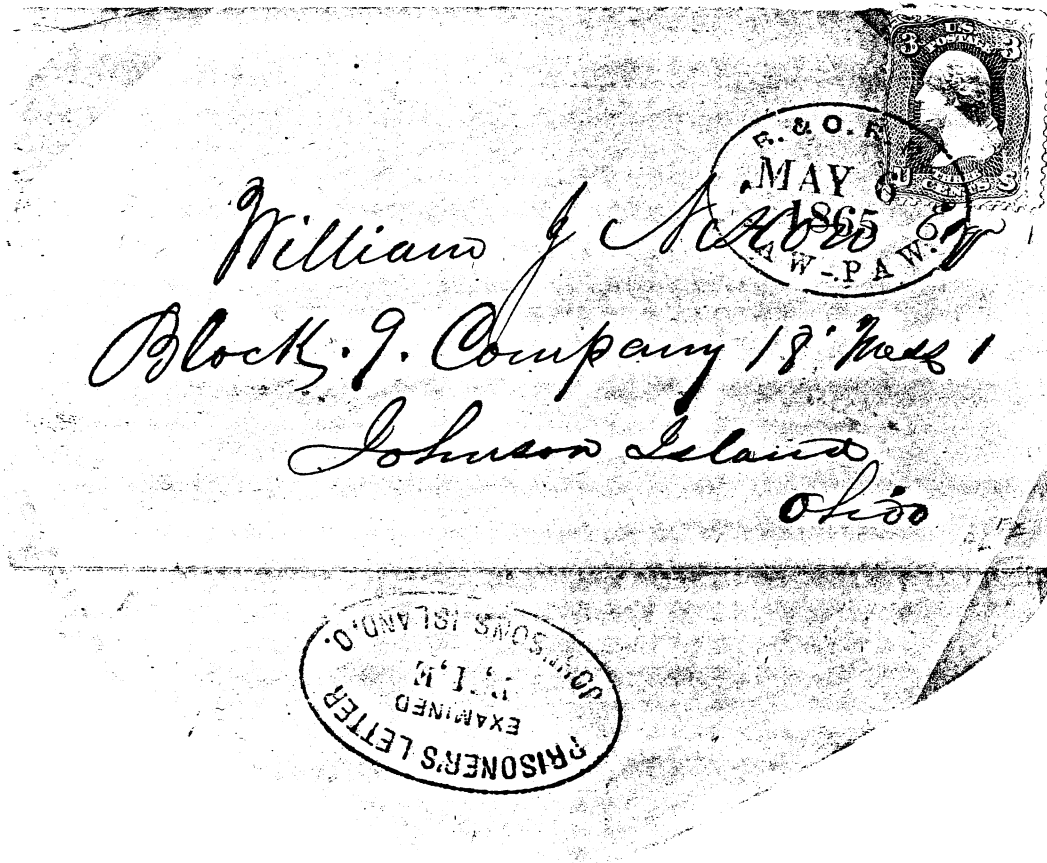 U.S.
POSTAGE
3 3
B. & O. R. R.
MAY 6
1865
PAW-PAW.
William J
Block. 9. Company 18 Mess 1
Johnson Island
Ohio
PRISONER'S LETTER
EXAMINED
JOHNSONS ISLAND, O.